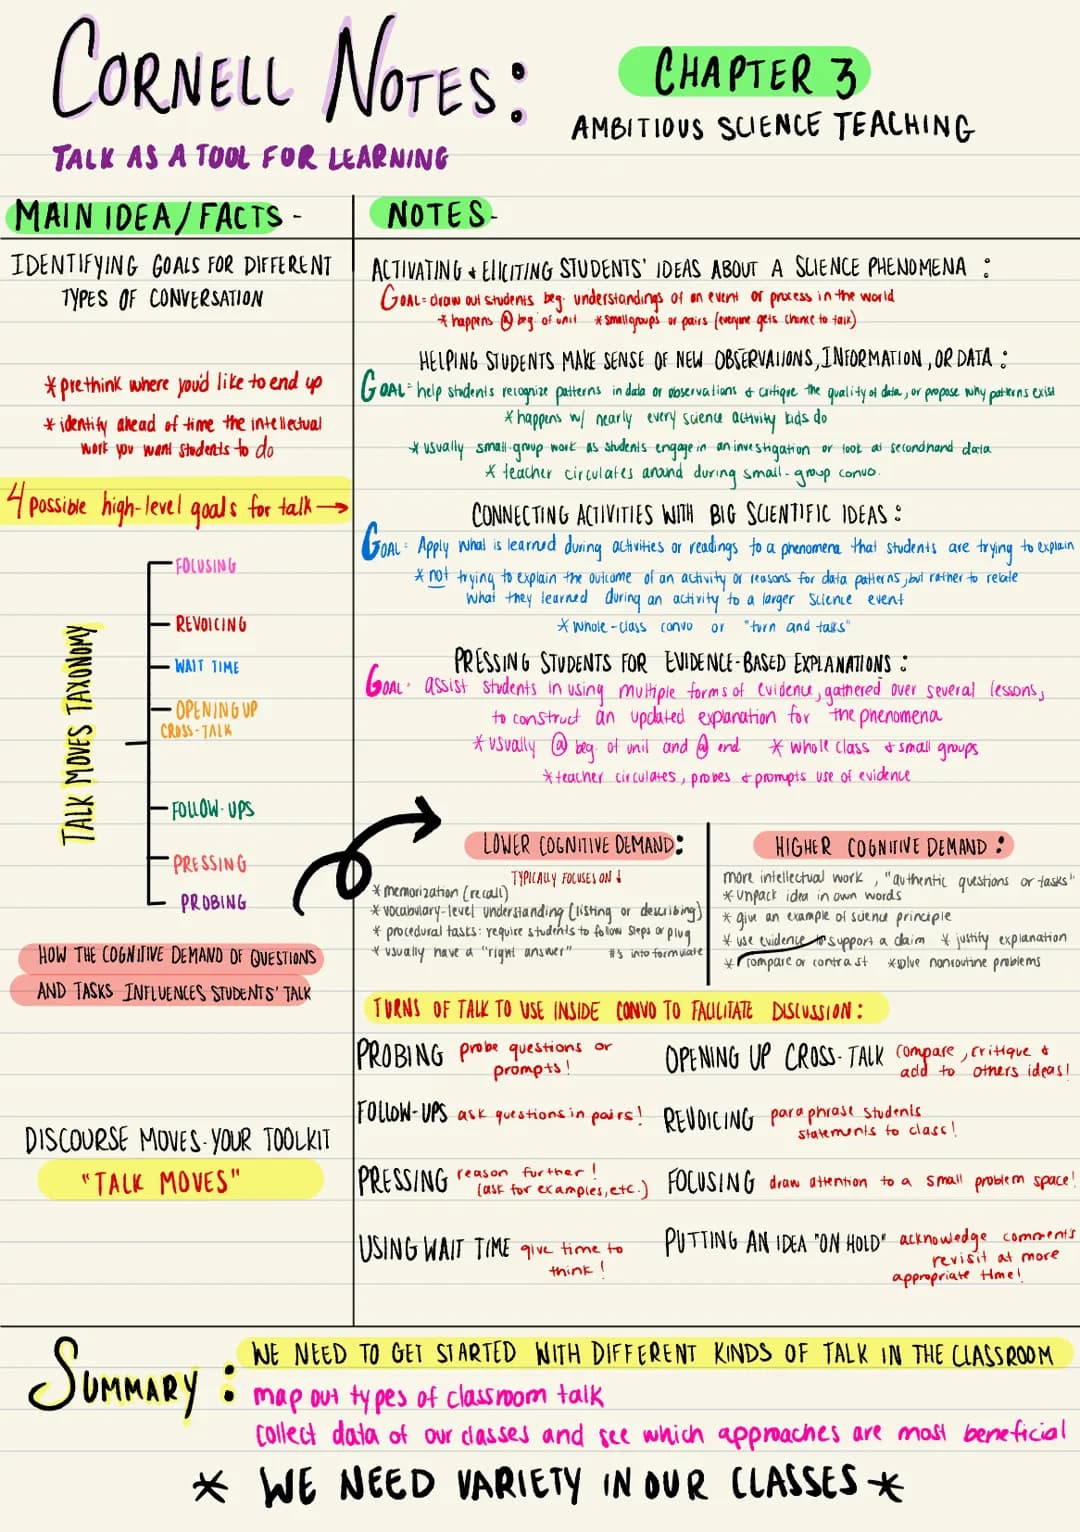 CORNELL NOTES:
CHAPTER 3
AMBITIOUS SCIENCE TEACHING
TALK AS A TOOL FOR LEARNING
MAIN IDEA/FACTS -
IDENTIFYING GOALS FOR DIFFERENT
TYPES OF CONVERSATION
* prethink where you'd like to end up
* identify ahead of time the intellectual
work you want students to do
4 possible high-level goals for talk →
TALK MOVES TAXONOMY
FOCUSING
REVOICING
WAIT TIME
OPENING UP
CROSS-TALK
FOLLOW-UPS
PRESSING
PROBING
HOW THE COGNITIVE DEMAND OF QUESTIONS
AND TASKS INFLUENCES STUDENTS' TALK
DISCOURSE MOVES-YOUR TOOLKIT
"TALK MOVES"
NOTES-
ACTIVATING + ELICITING STUDENTS' IDEAS ABOUT A SCIENCE PHENOMENA :
GOAL= draw out students beg. understandings of an event or process in the world
* happens @ beg. of unit * small groups or pairs (everyone gets chance to talk)
HELPING STUDENTS MAKE SENSE OF NEW OBSERVATIONS, INFORMATION, OR DATA :
GOAL= help students recognize patterns in data or observations & critique the quality of data, or propose why patterns exist
* happens w/ nearly every science activity kids do
* usually small-group work as students engage in an investigation or look at secondhand data
* teacher circulates around during small-group convo.
CONNECTING ACTIVITIES WITH BIG SCIENTIFIC IDEAS :
GOAL: Apply what is learned during activities or readings to a phenomena that students are trying to explain
* not trying to explain the outcome of an activity or reasons for data patterns, but rather to relate
what they learned during an activity to a larger science event
* whole-class convo or "turn and talks"
PRESSING STUDENTS FOR EVIDENCE-BASED EXPLANATIONS :
GOAL: assist students in using multiple forms of evidence, gathered over several lessons,
to construct an updated explanation for the phenomena
* usually @ beg. of unit and @ end * whole class & small groups
* teacher circulates, probes & prompts use of evidence
LOWER COGNITIVE DEMAND:
TYPICALLY FOCUSES ON ↓
* memorization (recall)
* vocabulary-level understanding (listing or describing)
* procedural tasks: require students to follow steps or plug
#s into formulate
* usually have a "right answer"
HIGHER COGNITIVE DEMAND :
more intellectual work, "authentic questions or tasks"
* unpack idea in own words
* give an example of science principle
* use evidence to support a claim * justify explanation
* compare or contrast * solve nonroutine problems
TURNS OF TALK TO USE INSIDE CONVO TO FACILITATE DISCUSSION:
PROBING probe questions or
prompts!
OPENING UP CROSS-TALK compare, critique &
add to others ideas!
FOLLOW-UPS ask questions in pairs!
REVOICING paraphrase students
statements to class!
PRESSING reason further!
(ask for examples, etc.)
FOCUSING draw attention to a small problem space!
USING WAIT TIME give time to
think!
PUTTING AN IDEA "ON HOLD" acknowledge comments
revisit at more
appropriate time!
SUMMARY :
WE NEED TO GET STARTED WITH DIFFERENT KINDS OF TALK IN THE CLASSROOM
map out types of classroom talk
collect data of our classes and see which approaches are most beneficial
* WE NEED VARIETY IN OUR CLASSES *